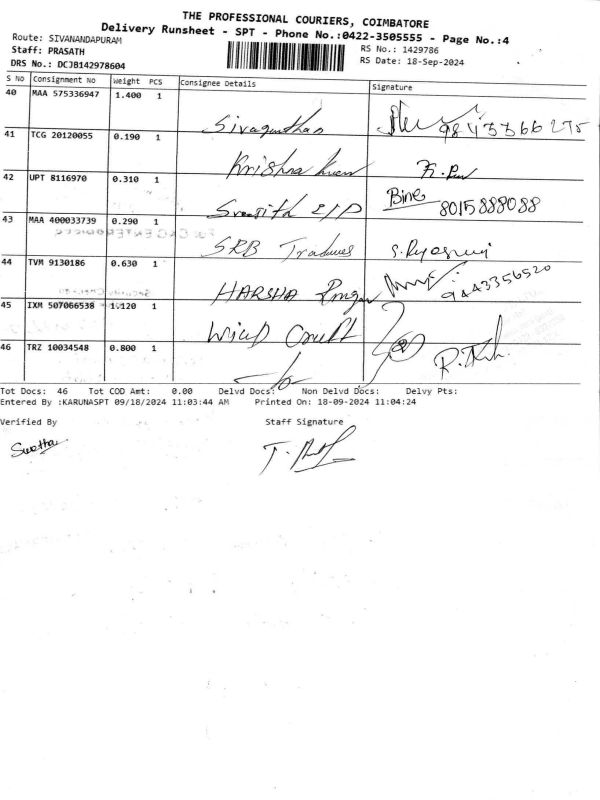 THE PROFESSIONAL COURIERS, COIMBATORE
Delivery Runsheet - SPT - Phone No.:0422-3505555 - Page No.:4
Route: SIVANANDAPURAM
RS No.: 1429786
Staff: PRASATH
RS Date: 18-Sep-2024
DRS No.: DCJB142978604
S No Consignment No Weight PCS Consignee Details Signature
40 MAA 575336947 1.400 1
41 TCG 20120055 0.190 1
Krishna
42 UPT 8116970 0.310 1
Bine 8015888088
43 MAA 400033739 0.290 1
SRB
44 TVM 9130186 0.630 1
HARSHA 9443356520
45 IXM 507066538 1.120 1
46 TRZ 10034548 0.800 1
Tot Docs: 46 Tot COD Amt: 0.00 Delvd Docs: Non Delvd Docs: Delvy Pts:
Entered By :KARUNASPT 09/18/2024 11:03:44 AM Printed On: 18-09-2024 11:04:24
Verified By Staff Signature
Swetha